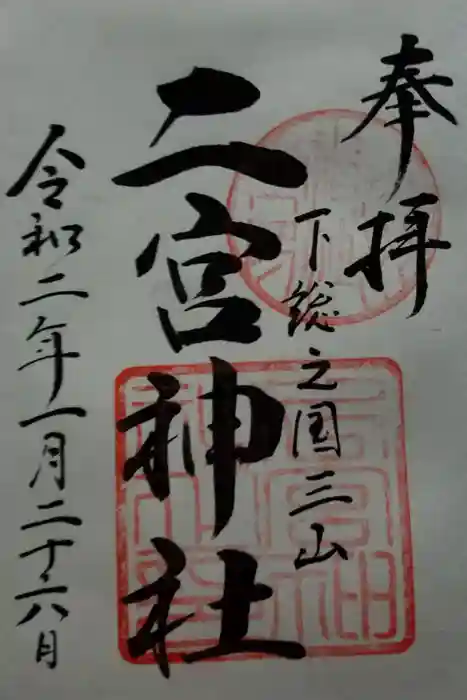 奉拝
下総之国三山
二宮神社
令和二年一月二十六月